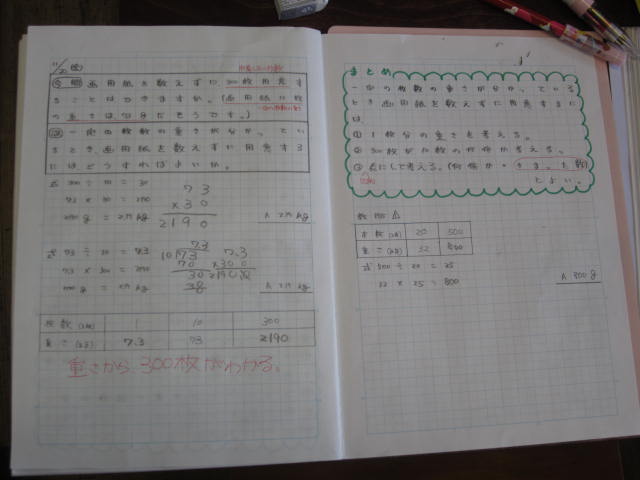 画用紙を数えずに300枚用意す
ることはできますか。(画用紙10枚
の重さは73gだそうです。)
一定の枚数の重さが分かってい
るとき、画用紙を数えずに用意する
にはどうすればよいか。
式 300÷10=30
73×30=2190
2190g=2.19kg
73
×30
2190
A 2.19kg
式 73÷10=7.3
7.3×300=2190
2190g=2.19kg
7.3
10)73
70
30
7.3
×300
A 2.19kg
枚数(まい) 1 10 300
重さ(g) 7.3 73 2190
重さから300枚がわかる。
まとめ
一定の枚数の重さが分かっている
とき画用紙を数えずに用意するに
は
① 1枚分の重さを考える。
② 300枚が10枚の何倍か考える。
③ 表にして考える。(何倍か・きまった数)
とよい。
枚数(まい) 20 500
重さ(g) 32 800
式 500÷20=25
32×25=800
A 800g